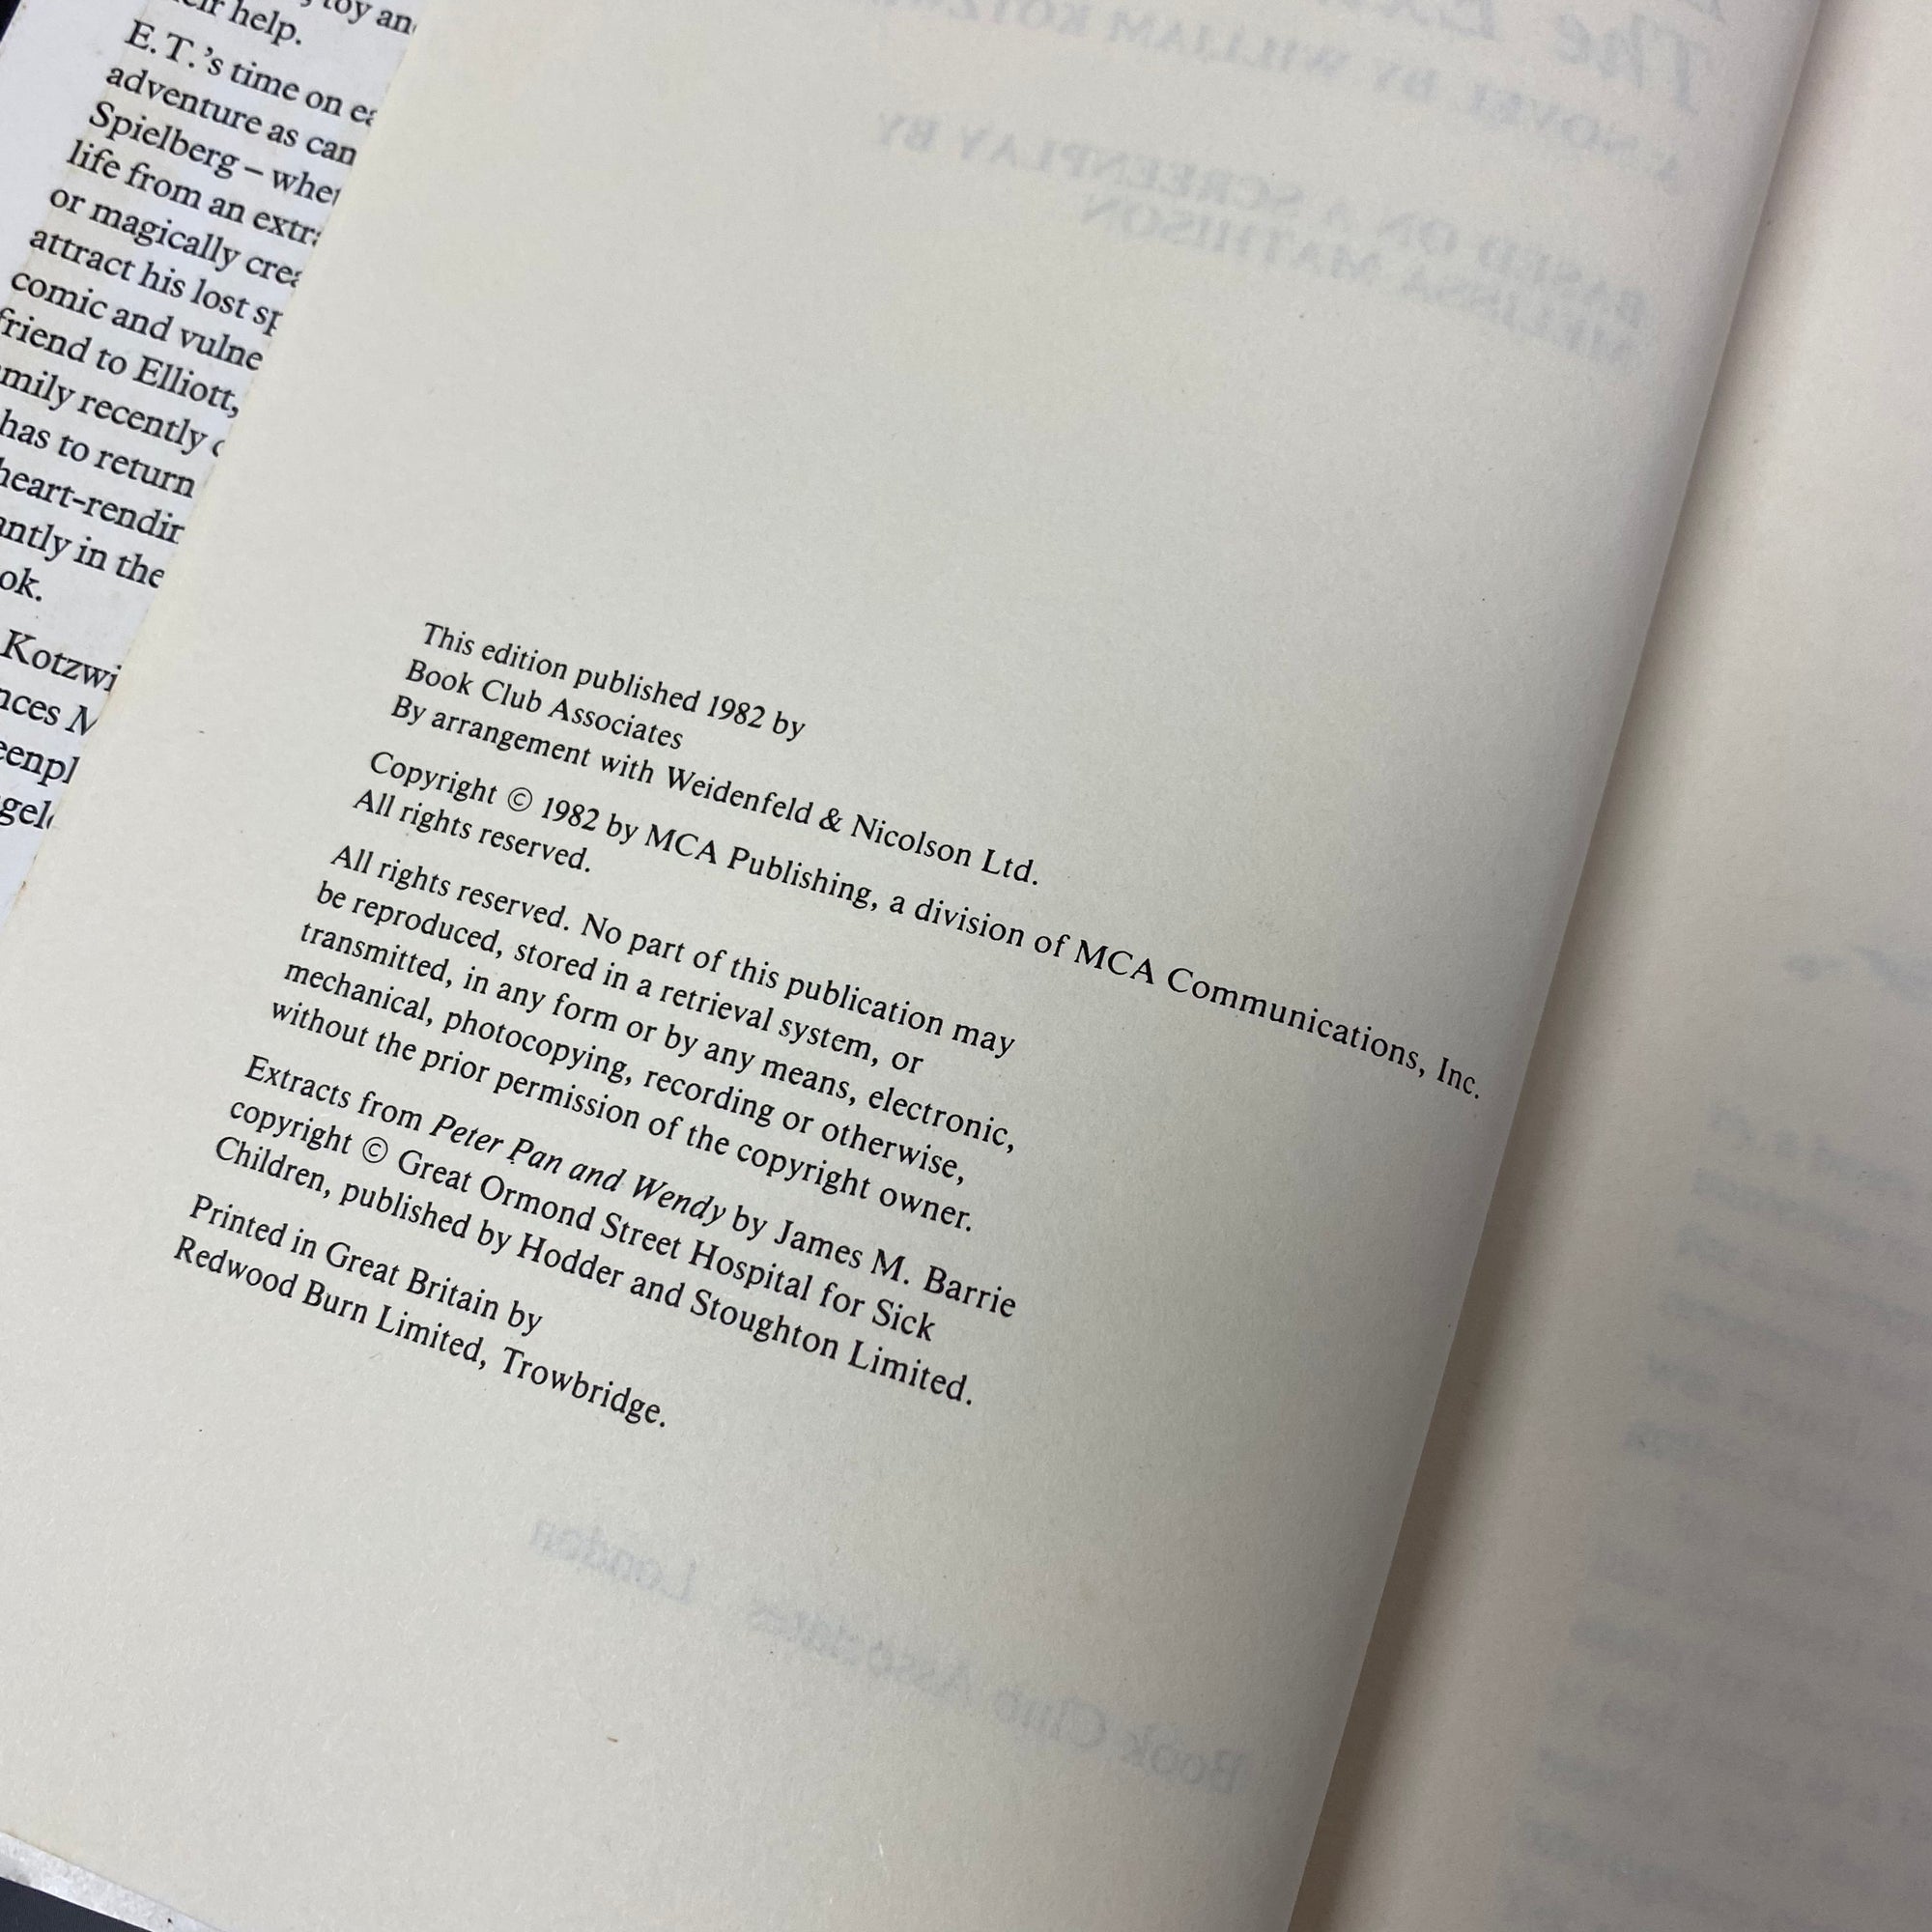 toy an
eir help.
E.T.'s time on ea
adventure as can
Spielberg – whet
life from an extra
or magically crea
attract his lost sp
comic and vulne
friend to Elliott,
mily recently
has to return
heart-rendin
antly in the
ok.
Kotzwi
nces M
eenpl
gel
The
A NOVEL BY WILLIAM KOTZ
BASED ON A SCREENPLAY BY
MELISSA MATHISON
This edition published 1982 by
Book Club Associates
By arrangement with Weidenfeld & Nicolson Ltd.
Copyright © 1982 by MCA Publishing, a division of MCA Communications, Inc.
All rights reserved.
All rights reserved. No part of this publication may
be reproduced, stored in a retrieval system, or
transmitted, in any form or by any means, electronic,
mechanical, photocopying, recording or otherwise,
without the prior permission of the copyright owner.
Extracts from Peter Pan and Wendy by James M. Barrie
copyright © Great Ormond Street Hospital for Sick
Children, published by Hodder and Stoughton Limited.
Printed in Great Britain by
Redwood Burn Limited, Trowbridge.
Book Club Associates London